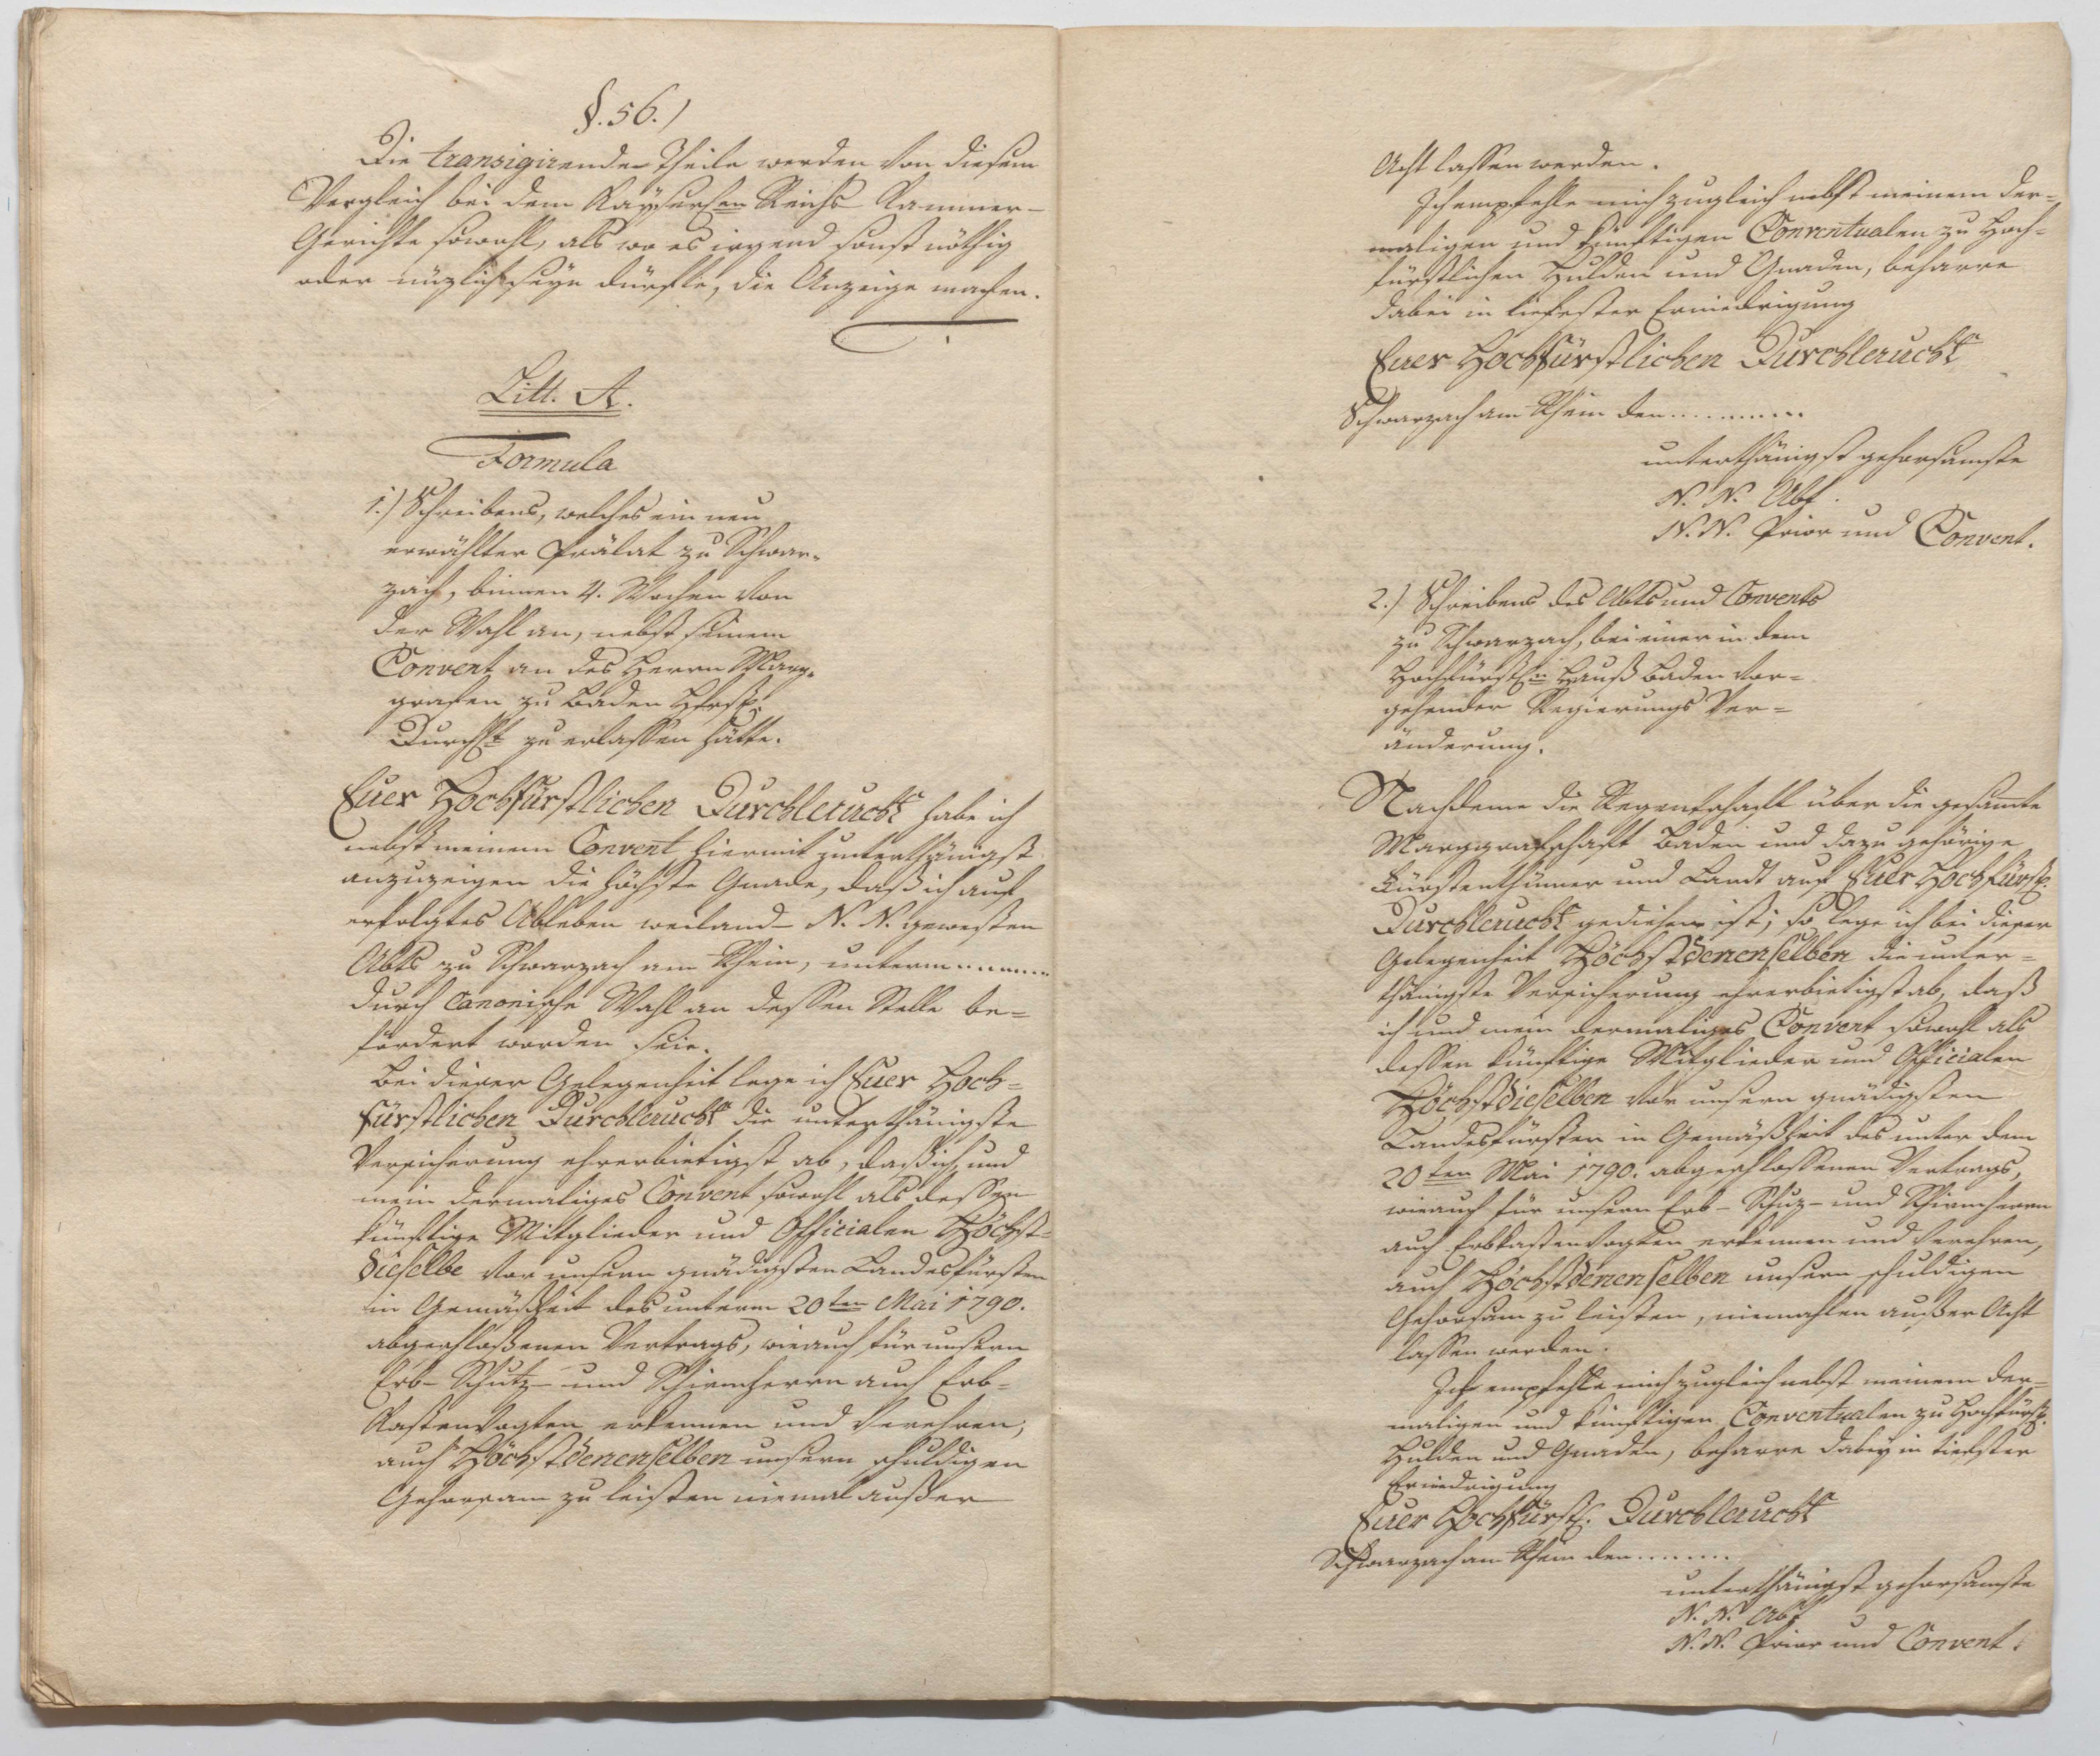 §. 56.)
Die transigirende Theile werden von diesem
Vergleich bei dem Kayserl.en Reichs Kammer-
Gerichte sowohl, als wo es irgend sonst nöthig
oder nüzlich seyn dürfte, die Anzeige machen.
Litt. A.
Formula
1.) Schreibens, welches ein neu
erwählter Prälat zu Schwar-
zach, binnen 4. Wochen von
der Wahl an, nebst seinem
Convent an des Herrn Marg-
grafen zu Baden Hfrstl.
Durchlt zu erlassen hätte.
Euer Hochfürstlichen Durchleucht habe ich
nebst meinem Convent hiermit unterthänigst
anzuzeigen die höchste Gnade, daß ich auf
erfolgtes Ableben weiland N. N. geweßen
Abts zu Schwarzach am Rhein, unterm ........
durch Canonische Wahl an dessen Stelle be-
fördert worden seie.
Bei dieser Gelegenheit lege ich Euer Hoch-
fürstlichen Durchleucht die unterthänigste
Versicherung ehrerbietigst ab, daß ich und
mein dermaliges Convent sowohl als dessen
künftige Mitglieder und Officialen Höchst-
dieselbe vor unsern gnädigsten Landesfürsten
in Gemäßheit des unterm 20ten Mai 1790.
abgeschloßenen Vertrags, wie auch für unsern
Erb- Schutz- und Schirmherrn auch Erb-
Kastenvogten erkennen und verehren,
auch Höchstdenenselben unsern schuldigen
Gehorsam zu leisten niemal außer
Acht lassen werden.
Ich empfehle mich zugleich nebst meinem der-
maligen und künftigen Conventualen zu Hoch-
fürstlichen Hulden und Gnaden, beharre
dabei in tiefester Erniedrigung
Euer Hochfürstlichen Durchleucht
Schwarzach am Rhein den ..........
unterthänigst gehorsamste
N. N. Abt.
N. N. Prior und Convent.
2.) Schreibens des Abts und Convents
zu Schwarzach, bei einer in dem
Hochfürstl.n Hauß Baden vor-
gehender Regierungs Ver-
änderung.
Nachdeme die Regentschaft über die gesamte
Marggrafschaft Baden und dazu gehörige
Fürstenthümer und Landt auf Euer Hochfürstl.
Durchleucht gediehen ist; so lege ich bei dieser
Gelegenheit Höchstdenenselben die unter-
thänigste Versicherung ehrerbietigst ab, daß
ich und mein dermaliges Convent sowohl als
dessen künftige Mitglieder und Officialen
Höchstdieselben vor unsern gnädigsten
Landesfürsten in Gemäßheit des unter dem
20ten Mai 1790. abgeschlossenen Vertrags,
wie auch für unsern Erb- Schuz- und Schirmherrn
auch Erbkastenvogten erkennen und verehren,
auch Höchstdenenselben unsern schuldigen
Gehorsam zu leisten, niemahlen außer Acht
lassen werden.
Ich empfehle mich zugleich nebst meinem der-
maligen und künftigen Conventualen zu Hochfürstl.
Hulden und Gnaden, beharre dabey in tiefster
Erniedrigung
Euer Hochfürstl. Durchleucht
Schwarzach am Rhein den ........
unterthänigst gehorsamste
N. N. Abt
N. N. Prior und Convent.